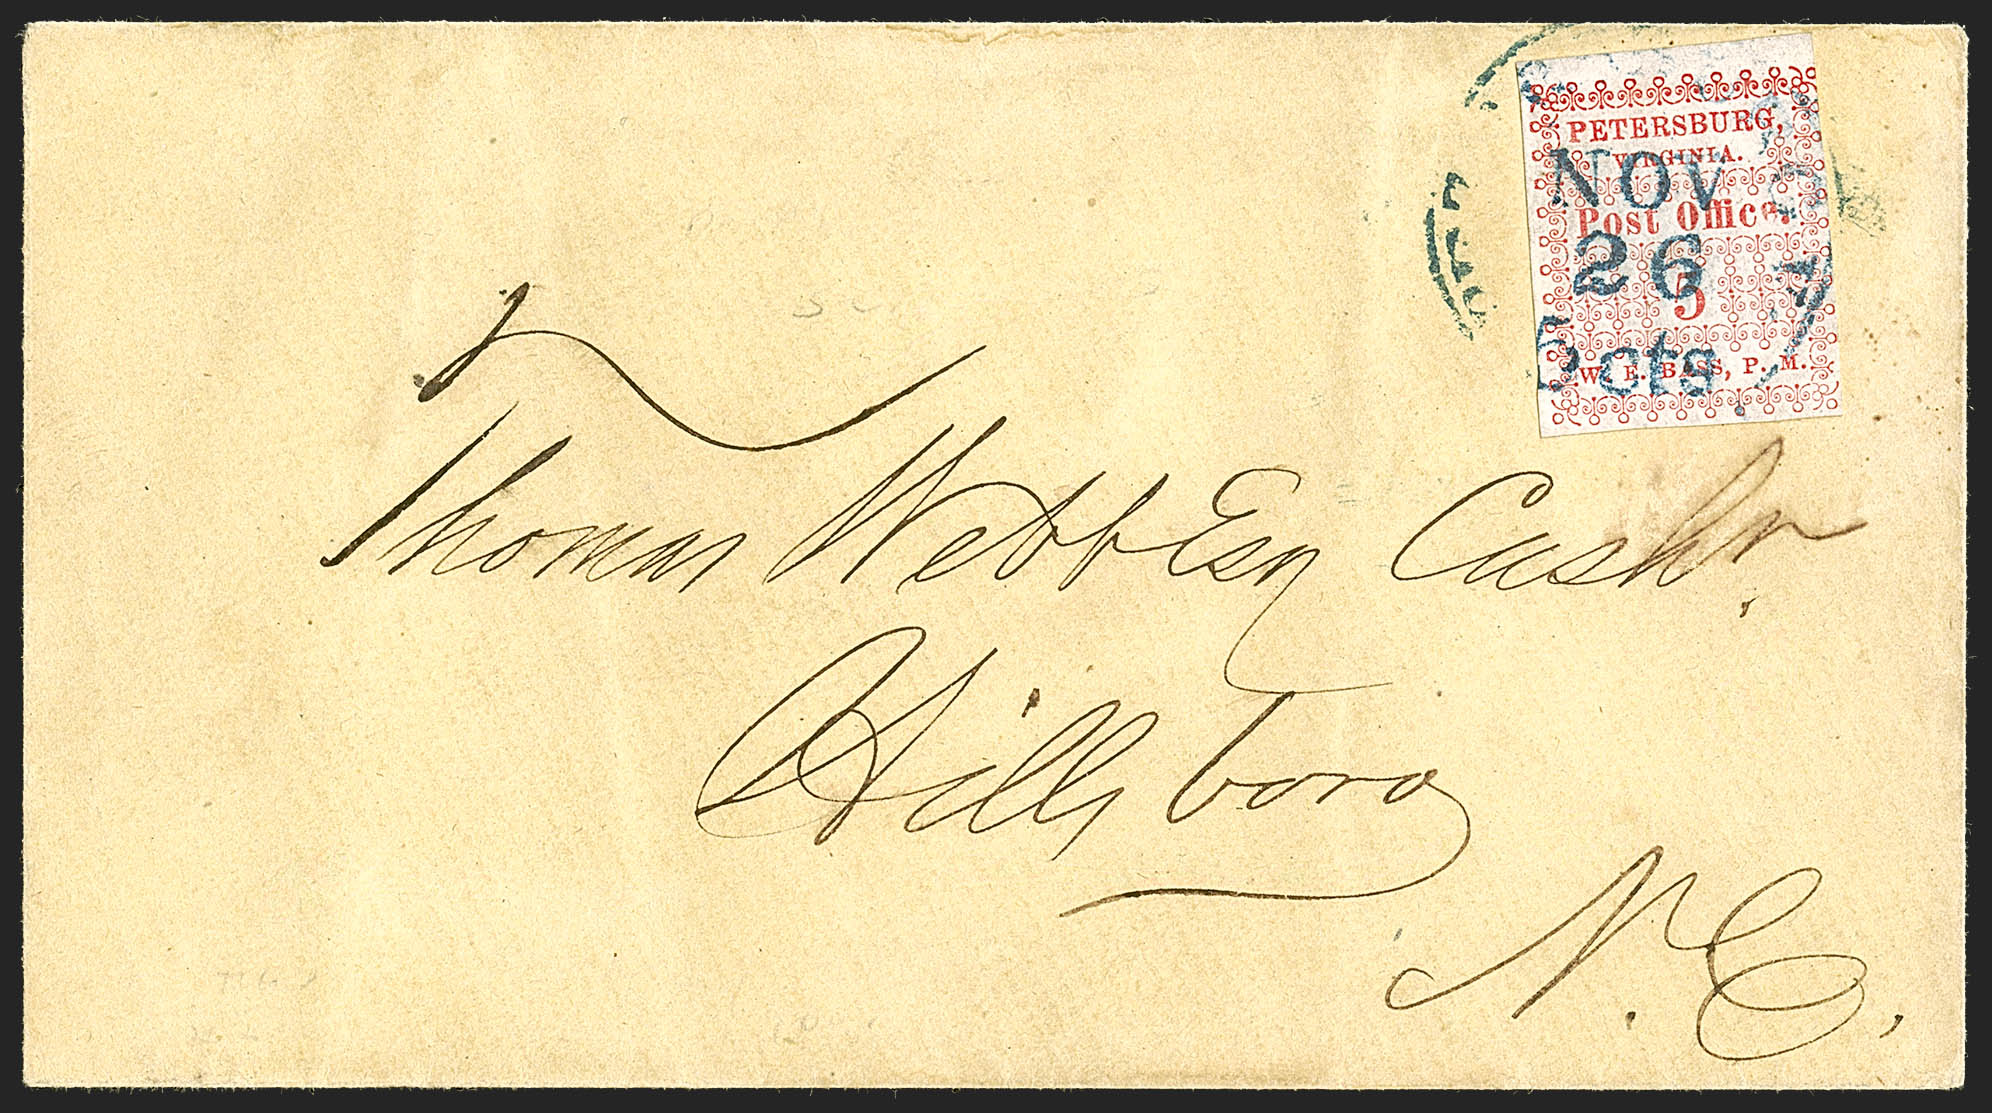 PETERSBURG,
VIRGINIA.
Post Office.
5
W. E. BASS, P. M.
NOV
26
5 cts
Thomas Webb Esq Cashr.
Hillsboro
N.C.